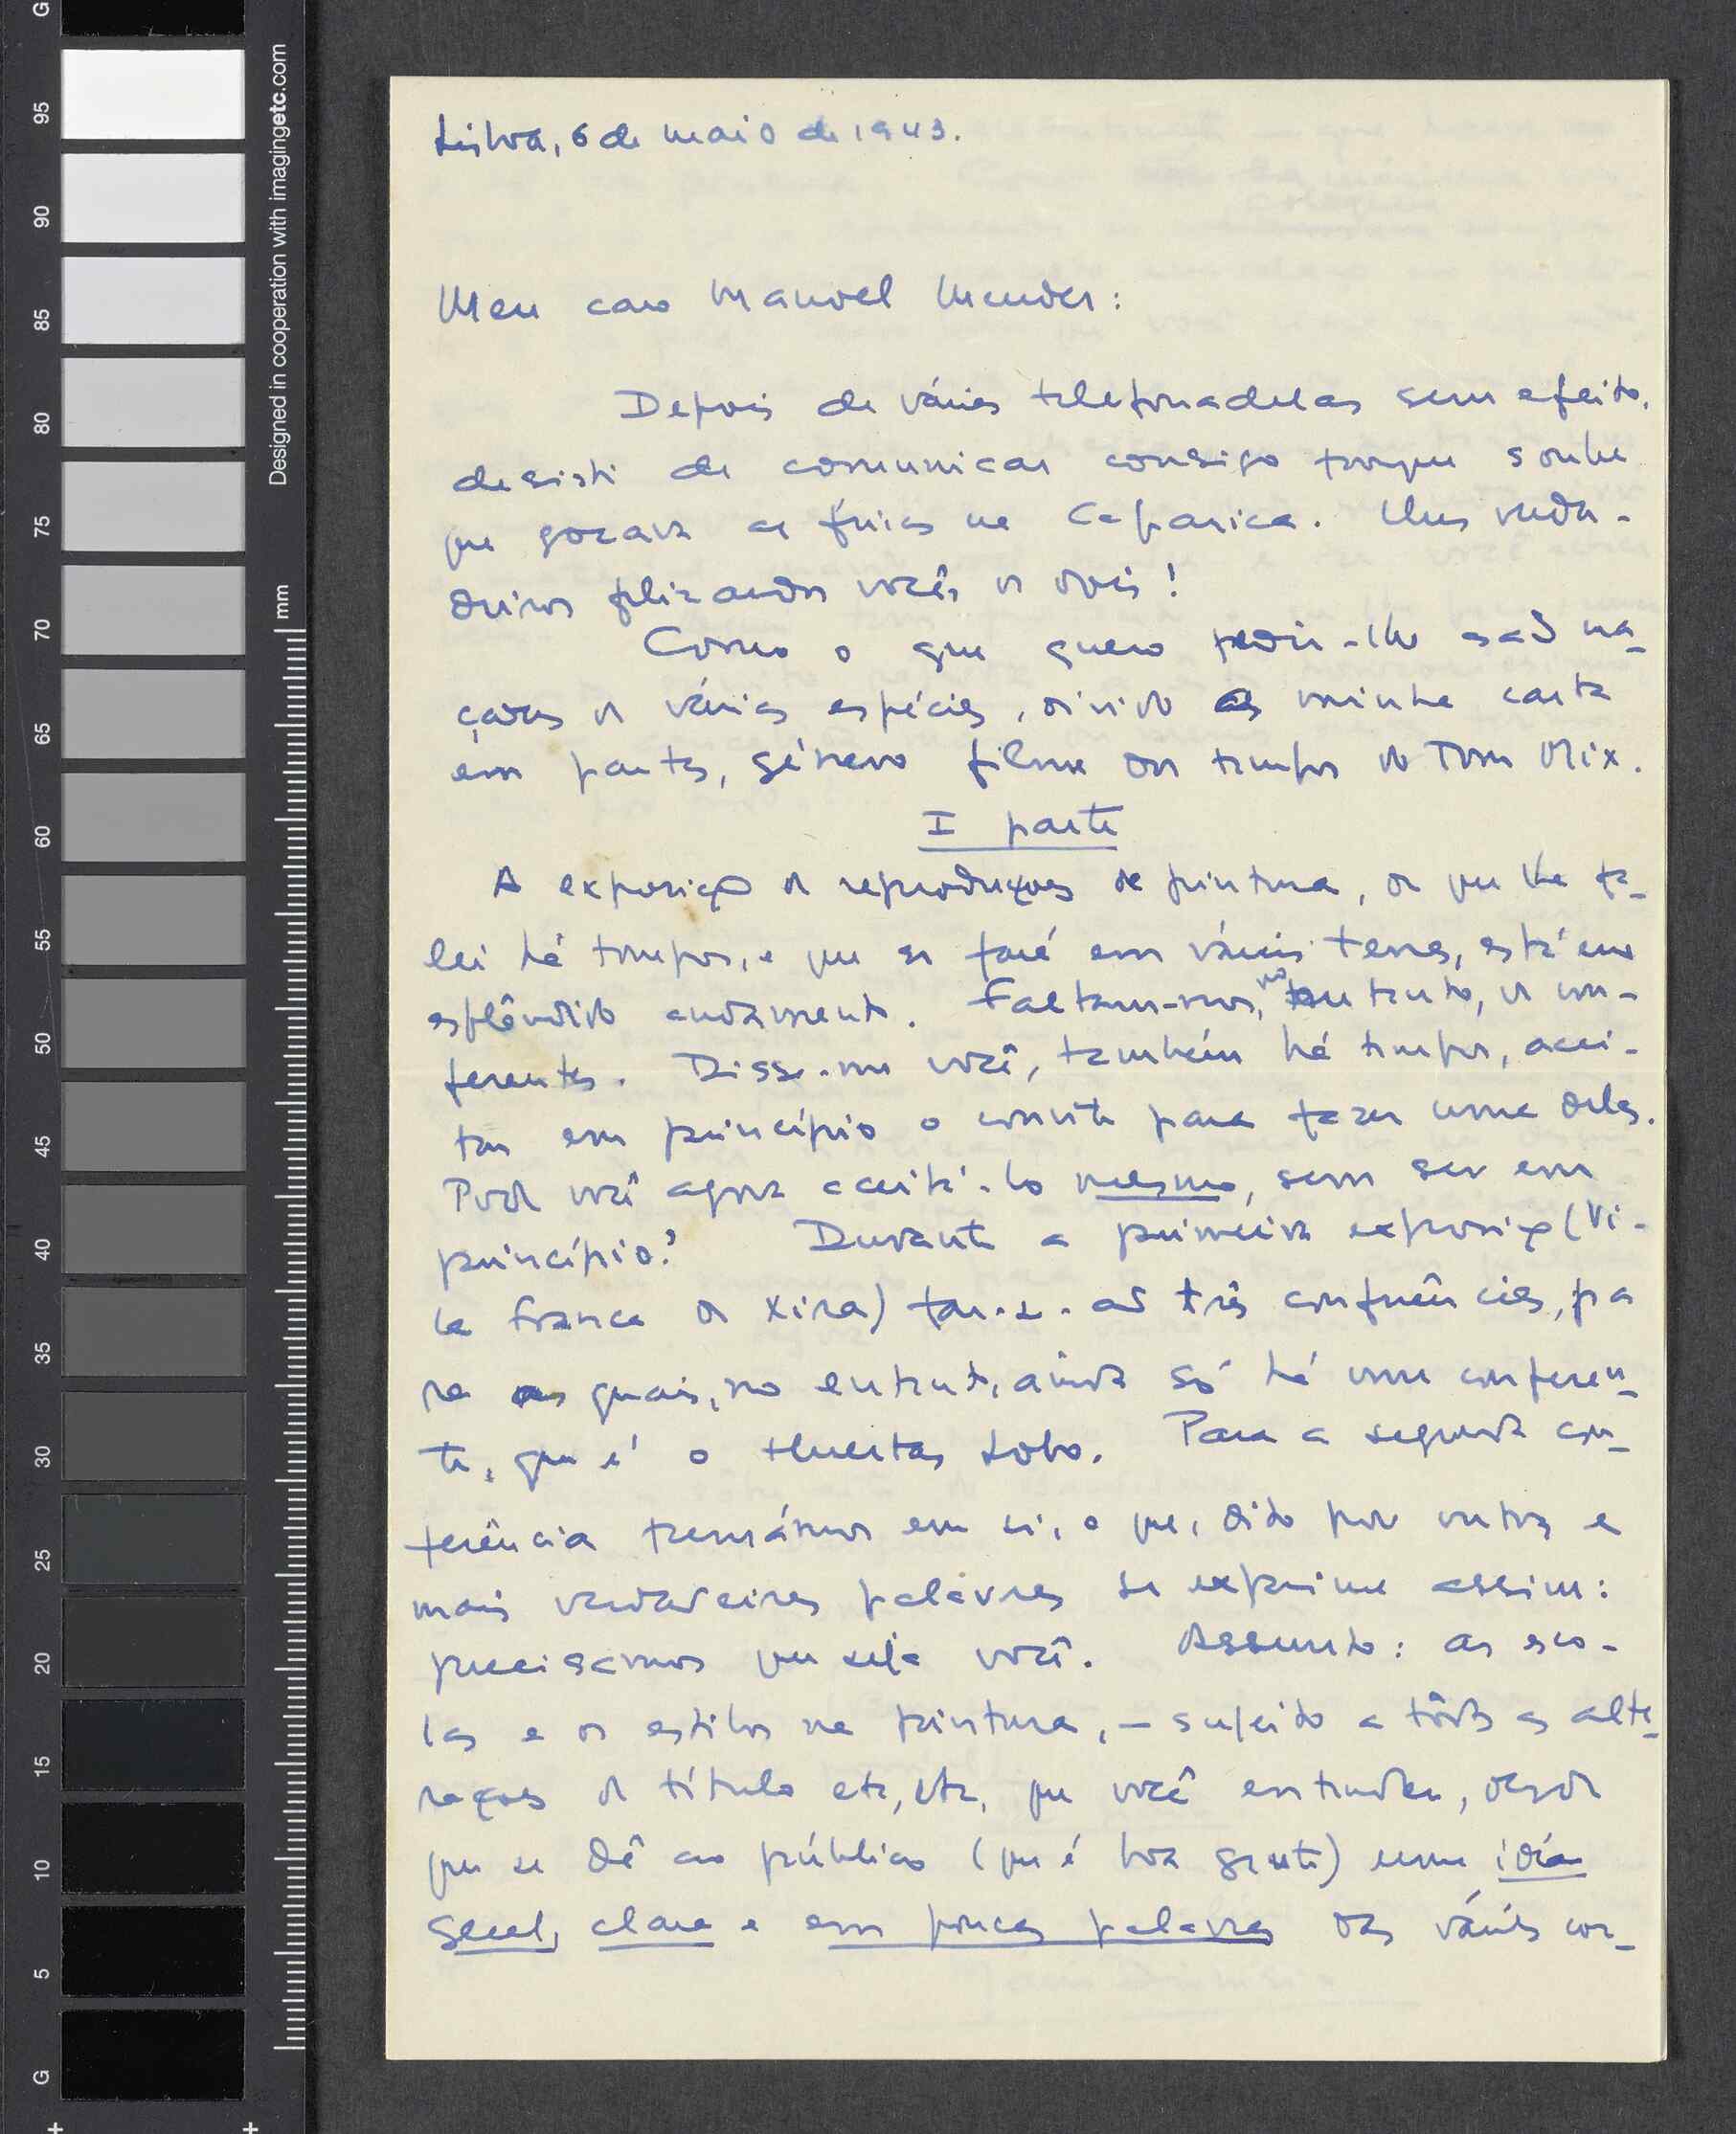 Lisboa, 6 de maio de 1943.
Meu caro Manuel Mendes:
Depois de várias telefonadelas sem efeito,
desisti de comunicar consigo porque soube
que gozava as férias na Caparica. Uns verda-
deiros felizardos vocês os dois!
Como o que quero pedir-lhe são ma-
çadas de várias espécies, divido a minha carta
em partes, género filme dos tempos do Tom Mix.
I parte
A exposição de reproduções de pintura, de que lhe fa-
lei há tempos, e que se fará em várias terras, está em
esplêndido andamento. Faltam-nos, no entanto, os con-
ferentes. Disse-me você, também há tempos, acei-
tar em princípio o convite para fazer uma delas.
Pode você agora aceitá-lo mesmo, sem ser em
princípio? Durante a primeira exposição (Vi-
la Franca de Xira) far-se-ão três conferências, pa
ra as quais, no entanto, ainda só há um conferen-
te, que é o Huertas Lobo. Para a segunda con-
ferência pensámos em si, o que, dito por outras e
mais verdadeiras palavras se exprime assim:
precisamos que seja você. Assunto: as esco-
las e os estilos na pintura, - sujeito a tôdas as alte-
rações de título etc, etc, que você entender, desde
que se dê ao público (que é boa gente) uma idéa
geral, clara e em poucas palavras das várias cor-
G
95
90
85
80
75
70
65
60
55
50
45
40
35
30
25
20
15
10
5
G
Designed in cooperation with imagingetc.com
mm